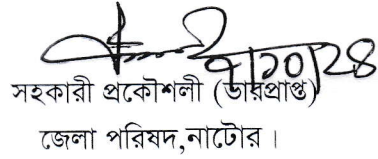 ৭/১০/২৪
সহকারী প্রকৌশলী (ভারপ্রাপ্ত)
জেলা পরিষদ,নাটোর ।